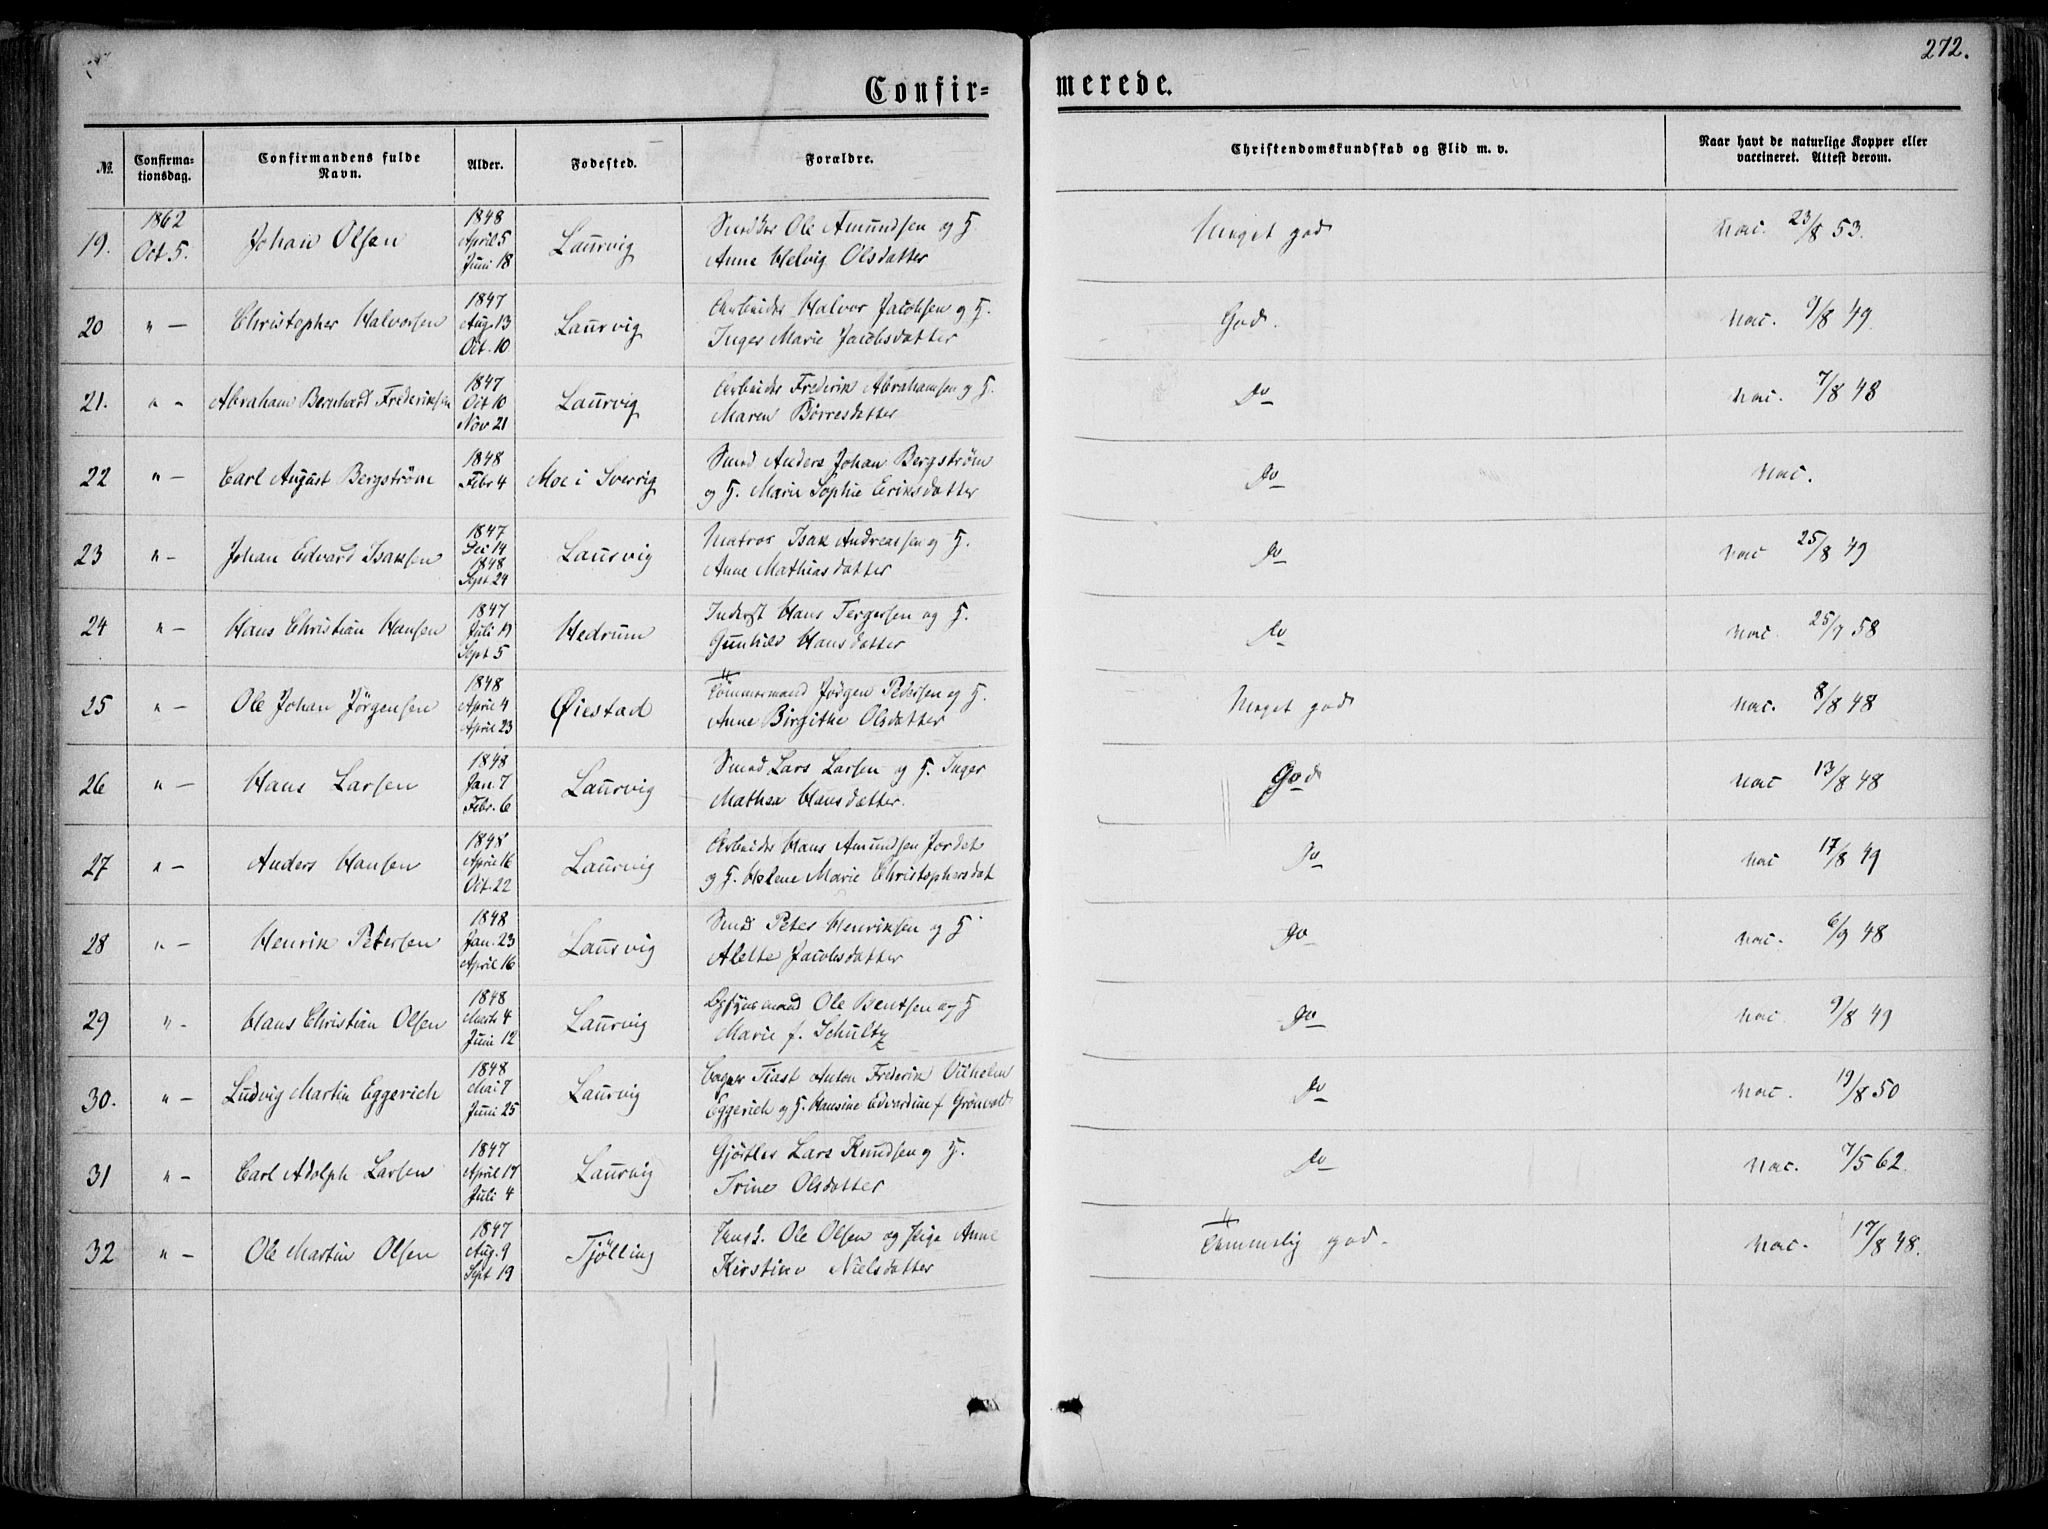 272.
Confir= merede.
№. Confirma-tionsdag. Confirmandens fulde Navn. Alder. Fødested. Forældre. Christendomskundskab og Flid m. v. Naar havt de naturlige Kopper eller vaccineret. Attest derom.
1862 1848
19. Oct 5. Johan Olsen April 5 Laurvig Snedker Ole Amundsen og H. Meget god Vac. 23/8 53.
Juni 18 Anne Helvig Olsdatter
1847
20 " — Christopher Halvorsen Aug. 13 Laurvig Arbeider Halvor Jacobsen og H. God. Vac. 9/8 49.
Oct. 10 Inger Marie Jacobsdatter
1847
21. " - Abraham Bernhard Frederiksen Oct 10 Laurvig Arbeider Frederik Abrahamsen og H. Do Vac. 7/8 48
Nov 21 Maren Børresdatter
1848
22 " — Carl August Bergstrøm Febr 4 Moe i Sverrig Smed Anders Johan Bergstrøm Do Vac.
og H. Marie Sophie Eriksdatter
1847
23 " — Johan Edvard Isaksen Dec 14 Laurvig Matros Isak Andreassen og H. Do Vac 25/8 49
1848
Sept 24 Anne Mathiasdatter
1847
24 " — Hans Christian Hansen Juli 19 Hedrum Inderst Hans Tergersen og H. Do Vac. 25/7 58
Sept 5 Gunhild Hansdatter
1848
25 " - Ole Johan Jørgensen April 4 Øiestad Tømmermand Jørgen Pedersen og H. Meget god Vac. 8/8 48
April 23 Anne Birgithe Olsdatter
1848
26 " — Hans Larsen Jan. 7 Laurvig Smed Lars Larsen og H. Inger God Vac 13/8 48
Febr. 6 Mathea Hansdatter.
1848
27 " - Anders Hansen April 16 Laurvig Arbeider Hans Amundsen Jordet Do Vac 17/8 49
Oct. 22 og H. Helene Marie Christophersdat
1848
28 " — Henrik Petersen Jan. 23 Laurvig Smed Peter Henriksen og H. Do Vac. 6/9 48
April 16 Alette Jacobsdatter
1848
29 " - Hans Christian Olsen Marts 4 Laurvig Ole Bentsen og H Do Vac. 9/8 49
Juni 12 Marie f. Schultz
1848
30. " - Ludvig Martin Eggerich Mai 7 Laurvig Anton Frederik Vilhelm Do Vac. 19/8 50
Juni 25 Eggerich og H. Hansine Edvardine f Grönvold
1847
31 " - Carl Adolph Larsen April 17 Laurvig Gjørtler Lars Knudsen og H. Do Vac. 7/5 62.
Juli 4 Trine Olsdatter
1847
32 " - Ole Martin Olsen Aug. 9 Tjølling Ungk. Ole Olsen og Pige Anne Temmelig god. Vac. 17/8 48.
Sept 19 Kirstine Nielsdatter